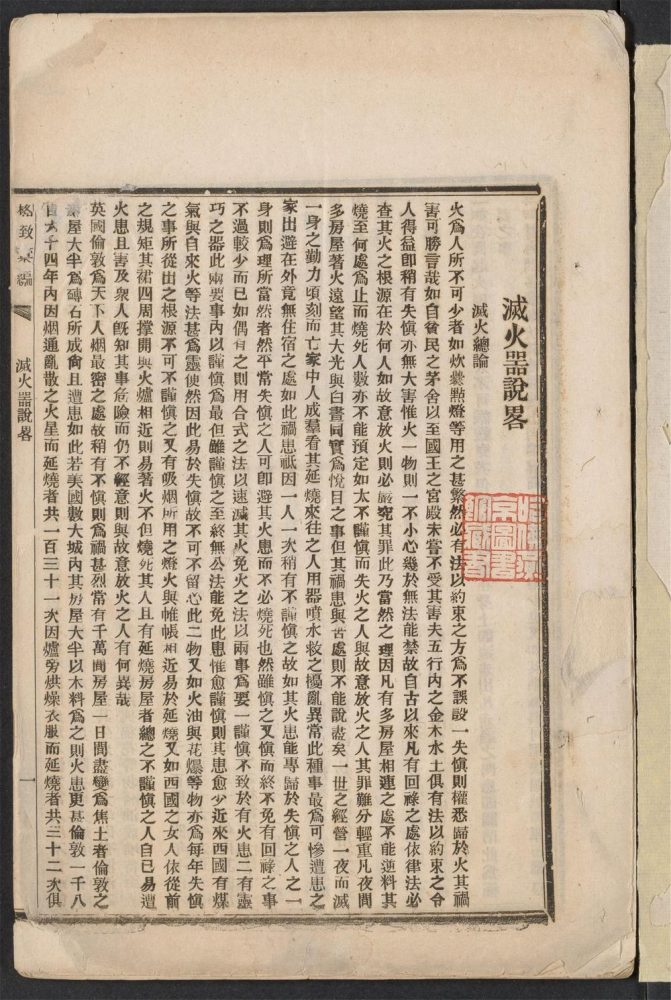 滅火器說畧
滅火總論
火爲人所不可少者如炊爨點燈等用之甚繁然必有法以約束之方爲不誤設一失慎則權悉歸於火其禍
害可勝言哉如自貧民之茅舍以至國王之宮殿未嘗不受其害夫五行內之金木水土俱有法以約束之令
人得益卽稍有失慎亦無大害惟火一物則一不小心幾於無法能禁故自古以來凡有回祿之處依律法必
查其火之根源在於何人如故意放火則必嚴究其罪此乃當然之理因凡有多房屋相連之處不能逆料其
燒至何處爲止而燒死人數亦不能預定如太不謹慎而失火之人與故意放火之人其罪難分輕重凡夜間
多房屋著火遠望其大光與白晝同實爲悅目之事但其禍患與苦處則不能說盡矣一世之經營一夜而滅
一身之勤力頃刻而亡家中人咸羣看其延燒來往之人用器噴水救之擾亂異常此種事最爲可慘遭患之
家出避在外竟無住宿之處如此禍患祗因一人一次稍有不謹慎之故如其火患能專歸於失慎之人之一
身則爲理所當然者然平常失慎之人可卽避其火患而不必燒死也然雖慎之又慎而終不免有回祿之事
不過較少而已如偶有之則用合式之法以速滅其火免火之法以兩事爲要一謹慎不致於有火患二有靈
巧之器此兩要事內以謹慎爲最但雖謹慎之至終無公法能免此患惟愈謹慎則其患愈少近來西國有煤
氣與自來火等法甚爲靈便然因此易於失慎故不可不留心此二物又如火油與花爆等物亦爲每年失慎
之事所從出之根源不可不謹慎之又有吸烟所用之燈火與帷帳相近易於延燒又如西國之女人依從前
之規矩其裙四周撐開與火爐相近則易著火不但燒死其人且有延燒房屋者總之不謹慎之人自已易遭
火患且害及衆人旣知其事危險而仍不經意則與故意放火之人有何異哉
英國倫敦爲天下人烟最密之處故稍有不慎則爲禍甚烈常有千萬間房屋一日間盡變爲焦土者倫敦之
屋大半爲磚石所成尙且遭患如此若美國數大城內其房屋大半以木料爲之則火患更甚倫敦一千八
百六十四年內因烟通亂散之火星而延燒者共一百三十一次因爐旁烘燥衣服而延燒者共三十二次俱
格致彙編
滅火器說畧
一